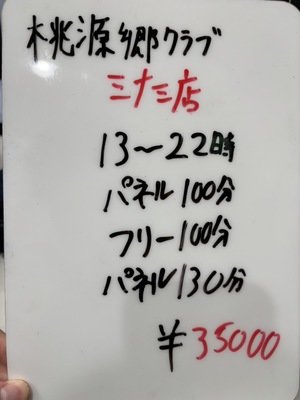 桃源郷クラブ
三十三店
13～22時
パネル100分
フリー100分
パネル130分
¥35000